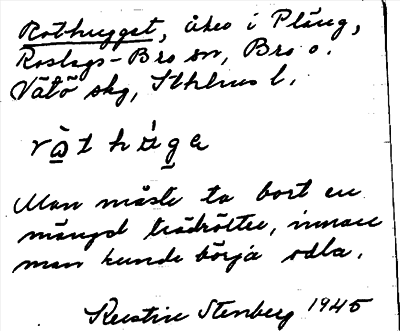 Rothugget, åker i Pläng,
Roslags-Bro sn, Bro o.
Vätö skg, Sthlms l.
ròt húge
Man måste ta bort en
mängd trädrötter, innan
man kunde börja odla.
Kerstin Stenberg 1945